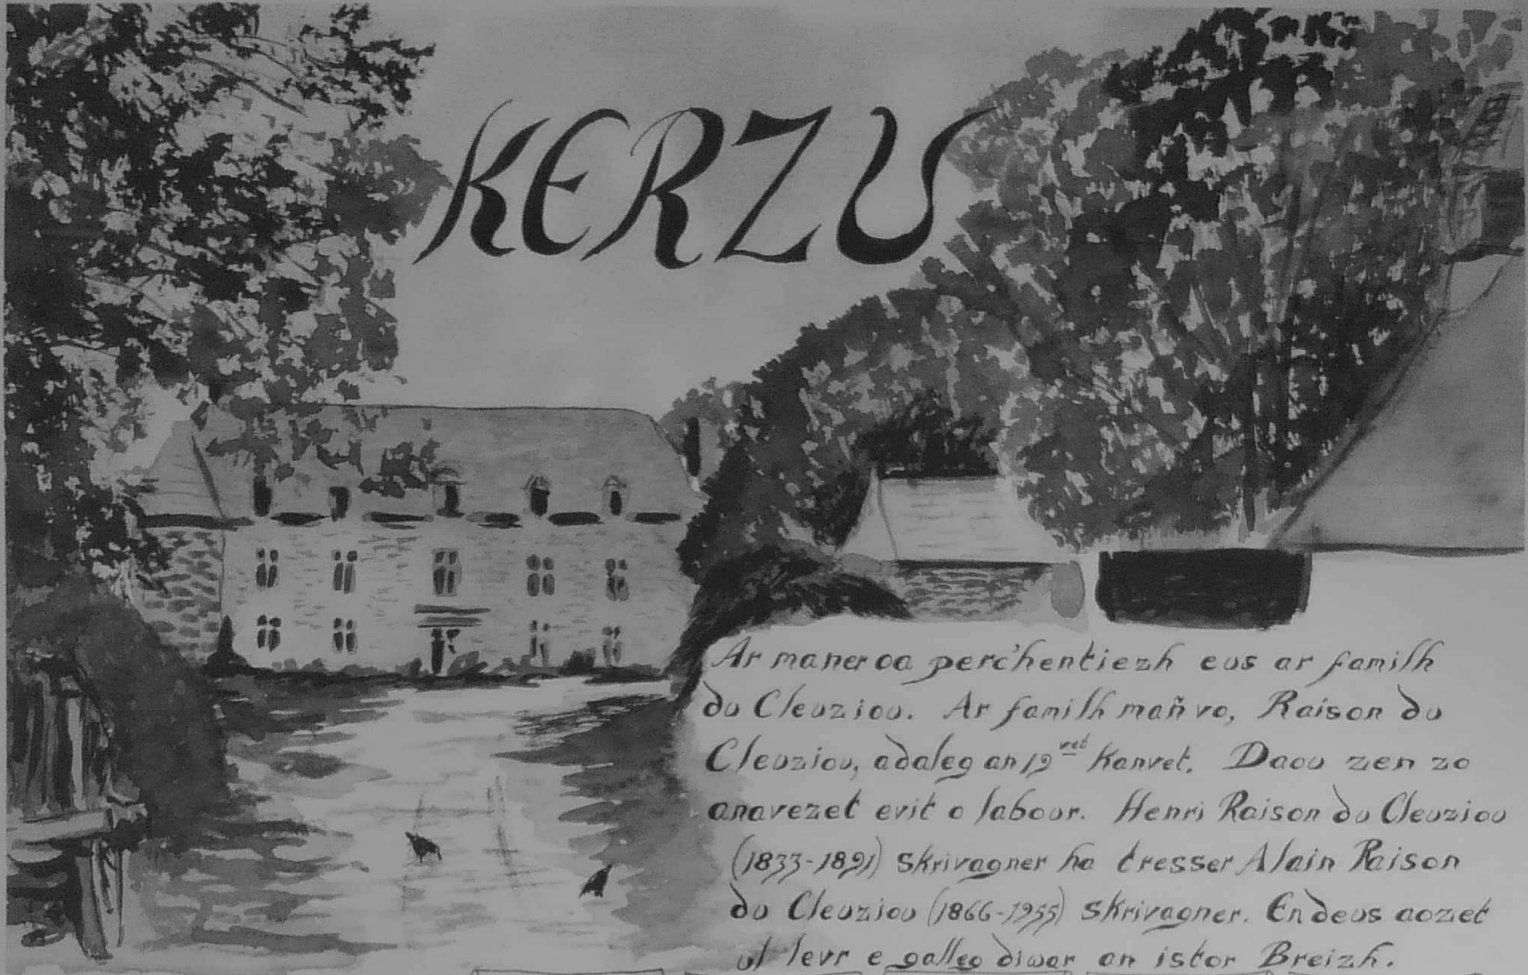 KERZU
Ar maner oa perc'hentiezh eus ar familh
du Cleuziou. Ar familh mañ vo, Raison du
Cleuziou, adaleg an 19vet Kanvet. Daou zen zo
anavezet evit o labour. Henri Raison du Cleuziou
(1833-1891) skrivagner ha tresser Alain Raison
du Cleuziou (1866-1955) skrivagner. En deus aozet
ul levr e galleg diwar an istor Breizh.